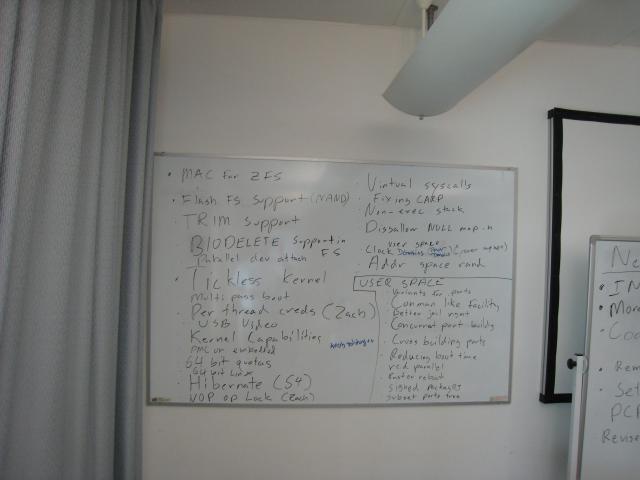 MAC for ZFS
Flash FS support (NAND)
TRIM support
BIODELETE support in FS
Parallel dev attach
Tickless Kernel
Multi pass boot
Per thread creds (Zach)
USB Video
Kernel Capabilities
PMC on embedded
64 bit quotas
64 bit Linux
Hibernate (S4)
VOP op Lock (Zach)
Virtual syscalls
Fixing CARP
Non-exec stack
Disallow NULL map-n
user space
Clock Domains
Addr space rand
USER SPACE
Variants for ports
Conman like facility
Better jail mgmt
Concurrent port builds
Cross building ports
Reducing boot time
rcd parallel
Faster reboot
signed packages
subset ports tree
Ne
IN
Mor
Co
Rem
Set
PCI
Revise